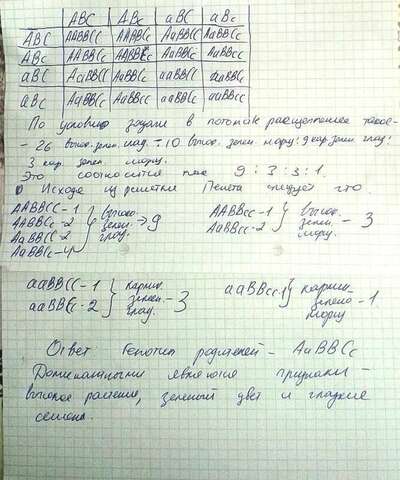 ABC ABc aBC aBc
ABC AABBCC AABBCc AaBBCC AaBBCc
ABc AABBCc AABBcc AaBBCc AaBBcc
aBC AaBBCC AaBBCc aaBBCC aaBBCc
aBc AaBBCc AaBBcc aaBBCc aaBBcc
По условию задачи в потомстве расщепление такое-
- 26 высок. зелен. глад. ÷ 10 высок. зелен. морщ: 9 кар. зелен. глад:
3 кар. зелен. морщ.
Это соотносится как 9 : 3 : 3 : 1.
Исходя из решетки Пенета следует что
AABBCC - 1 высок. AABBcc - 1 высок.
AABBCc - 2 зелен. → 9 AaBBcc - 2 зелен. - 3
AaBBCC - 2 глад. морщ.
AaBBCc - 4
aaBBCC - 1 карлик. aaBBcc - 1 карлик.
aaBBCc - 2 зелен. - 3 зелено - 1
глад. морщ
Ответ Генотип родителей - AaBBCc
Доминантными являются признаки -
высокое растение, зеленый цвет и гладкие
семена.